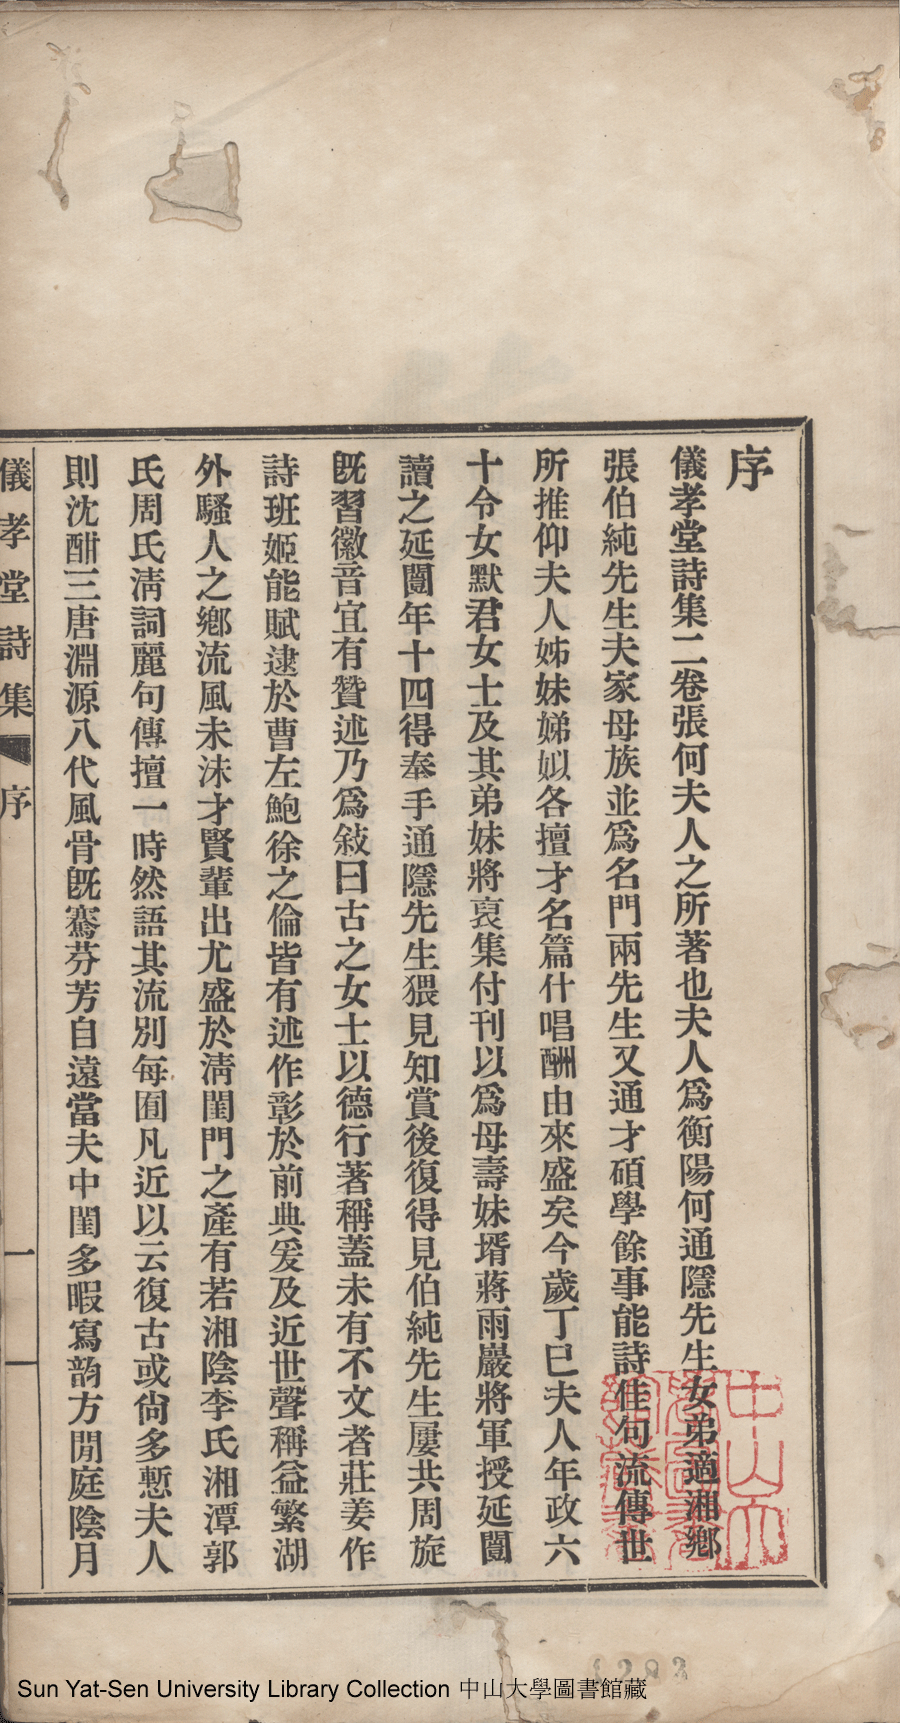 序
儀孝堂詩集二卷張何夫人之所著也夫人爲衡陽何通隱先生女弟適湘鄉
張伯純先生夫家母族並爲名門兩先生又通才碩學餘事能詩佳句流傳世
所推仰夫人姊妹娣姒各擅才名篇什唱酬由來盛矣今歲丁巳夫人年政六
十令女默君女士及其弟妹將裒集付刊以爲母壽妹壻蔣雨巖將軍授延闓
讀之延闓年十四得奉手通隱先生猥見知賞後復得見伯純先生屢共周旋
旣習徽音宜有贊述乃爲敍曰古之女士以德行著稱蓋未有不文者莊姜作
詩班姬能賦逮於曹左鮑徐之倫皆有述作彰於前典爰及近世聲稱益繁湖
外騷人之鄉流風未沬才賢輩出尤盛於淸閨門之產有若湘陰李氏湘潭郭
氏周氏淸詞麗句傳擅一時然語其流別每囿凡近以云復古或尙多慙夫人
則沈酣三唐淵源八代風骨旣騫芬芳自遠當夫中閨多暇寫韵方閒庭陰月
儀孝堂詩集 序 一
中山大學圖書館藏書
1293
Sun Yat-Sen University Library Collection 中山大學圖書館藏